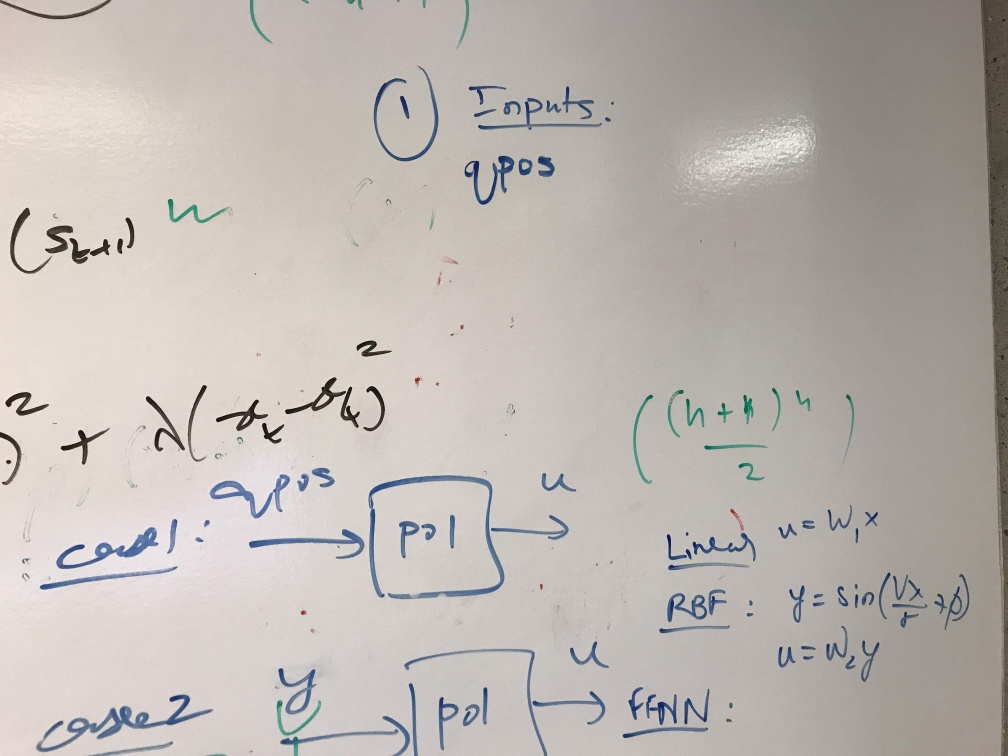 ① Inputs:
qpos
(S_{t+1})
)² + λ( )²
case 1: qpos → pol → u
((n+1)n / 2)
Linear u = W₁x
RBF : y = sin(Vx/r + φ)
u = W₂y
case 2 y → pol → u
FFNN :